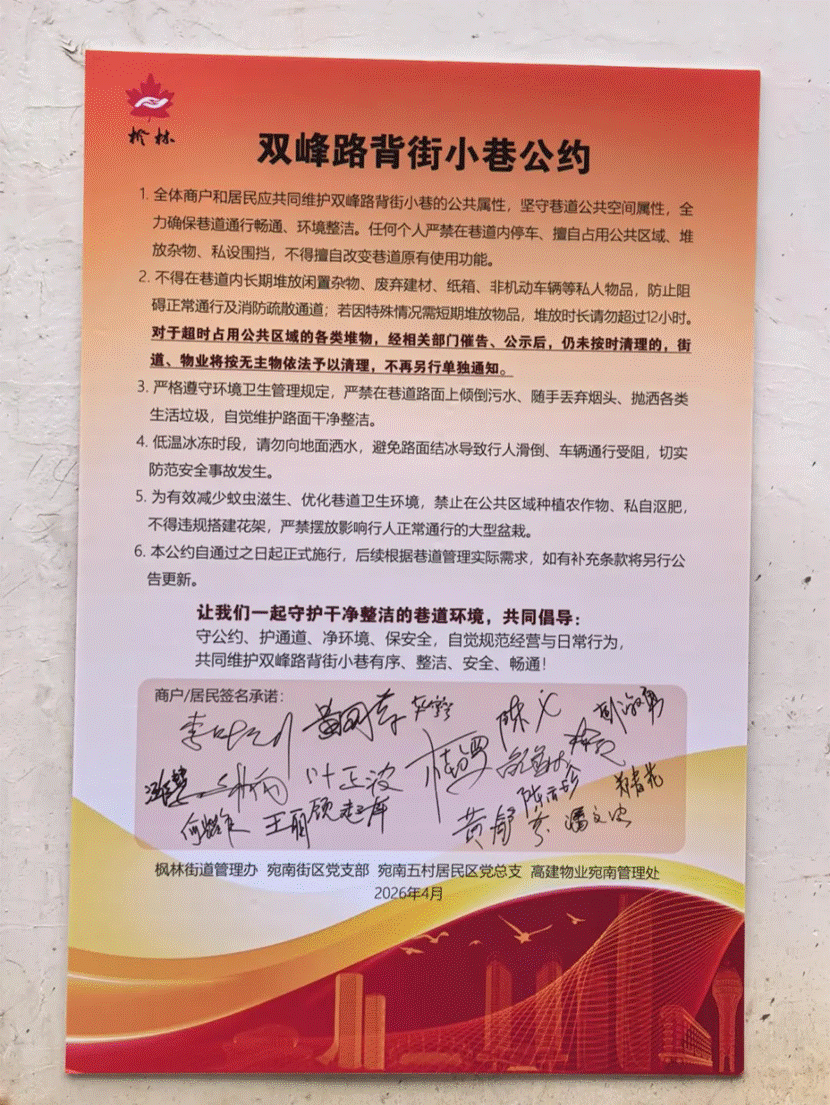 枫林
双峰路背街小巷公约
1. 全体商户和居民应共同维护双峰路背街小巷的公共属性，坚守巷道公共空间属性，全
力确保巷道通行畅通、环境整洁。任何个人严禁在巷道内停车、擅自占用公共区域、堆
放杂物、私设围挡，不得擅自改变巷道原有使用功能。
2. 不得在巷道内长期堆放闲置杂物、废弃建材、纸箱、非机动车辆等私人物品，防止阻
碍正常通行及消防疏散通道；若因特殊情况需短期堆放物品，堆放时长请勿超过12小时。
对于超时占用公共区域的各类堆物，经相关部门催告、公示后，仍未按时清理的，街
道、物业将按无主物依法予以清理，不再另行单独通知。
3. 严格遵守环境卫生管理规定，严禁在巷道路面上倾倒污水、随手丢弃烟头、抛洒各类
生活垃圾，自觉维护路面干净整洁。
4. 低温冰冻时段，请勿向地面洒水，避免路面结冰导致行人滑倒、车辆通行受阻，切实
防范安全事故发生。
5. 为有效减少蚊虫滋生、优化巷道卫生环境，禁止在公共区域种植农作物、私自沤肥，
不得违规搭建花架，严禁摆放影响行人正常通行的大型盆栽。
6. 本公约自通过之日起正式施行，后续根据巷道管理实际需求，如有补充条款将另行公
告更新。
让我们一起守护干净整洁的巷道环境，共同倡导：
守公约、护通道、净环境、保安全，自觉规范经营与日常行为，
共同维护双峰路背街小巷有序、整洁、安全、畅通！
商户/居民签名承诺：
叶正波
王丽
黄舒芬
潘文忠
枫林街道管理办 宛南街区党支部 宛南五村居民区党总支 高建物业宛南管理处
2026年4月